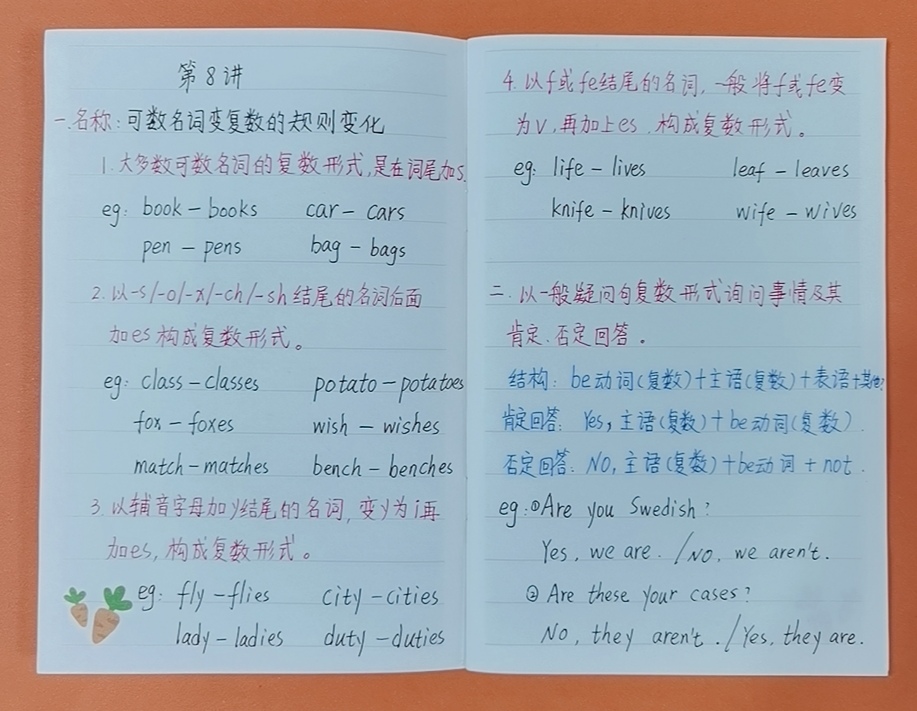 第8讲
一.名称:可数名词变复数的规则变化
1.大多数可数名词的复数形式,是在词尾加s.
eg: book – books car – cars
pen – pens bag – bags
2.以-s/-o/-x/-ch/-sh结尾的名词后面
加es构成复数形式。
eg: class – classes potato – potatoes
fox – foxes wish – wishes
match – matches bench – benches
3.以辅音字母加y结尾的名词,变y为i再
加es,构成复数形式。
eg: fly – flies city – cities
lady – ladies duty – duties
4.以f或fe结尾的名词,一般将f或fe变
为v,再加上es,构成复数形式。
eg: life – lives leaf – leaves
knife – knives wife – wives
二.以一般疑问句复数形式询问事情及其
肯定、否定回答。
结构:be动词(复数)+主语(复数)+表语+其他?
肯定回答:Yes,主语(复数)+be动词(复数).
否定回答:NO,主语(复数)+be动词+not.
eg:①Are you Swedish?
Yes, we are. /NO, we aren't.
②Are these your cases?
No, they aren't. /Yes, they are.